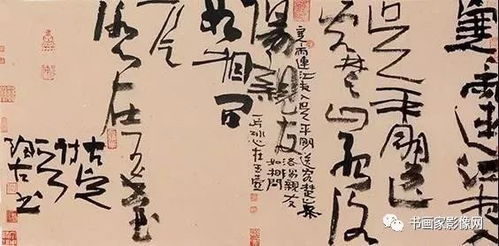 寒雨連江夜
入吴平明送
客楚山孤洛
寒雨連江夜入吴平明送客楚山孤
洛陽親友
如相問
一片冰心在玉壶
陽親友
如相問
一片
冰心在玉壶
古定
书画家影像网